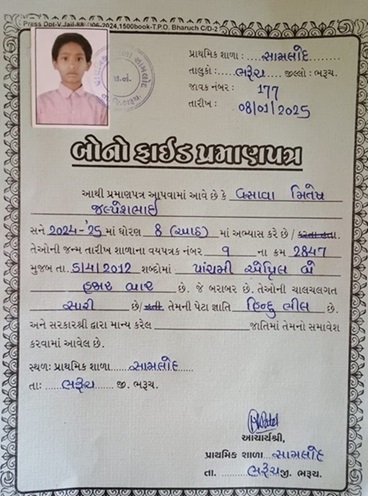 Press Opt-V Jail-88 006-2024,1500book-T.P.O. Bharuch C/D-2
પ્રાથમિક શાળા : સામલોદ
તાલુકો : ભરૂચ જીલ્લો : ભરૂચ.
જાવક નંબર : 177
તારીખ : 08/01/2025
બોનોફાઈડ પ્રમાણપત્ર
આથી પ્રમાણપત્ર આપવામાં આવે છે કે વસાવા મિતેષ
જલ્પેશભાઈ
સને 2024-'25 માં ધોરણ 8 (આઠ) માં અભ્યાસ કરે છે / કરતા હતા.
તેઓની જન્મ તારીખ શાળાના વયપત્રક નંબર 9 ના ક્રમ 2847
મુજબ તા. 5/4/2012 શબ્દોમાં પાંચમી એપ્રિલ બે
હજાર બાર છે. જે બરાબર છે. તેઓની ચાલચલગત
સારી છે/ હતી તેમની પેટા જ્ઞાતિ હિન્દુ ભીલ છે.
અને સરકારશ્રી દ્વારા માન્ય કરેલ જાતિમાં તેમનો સમાવેશ
કરવામાં આવેલ છે.
સ્થળ: પ્રાથમિક શાળા સામલોદ
તા: ભરૂચ જી. ભરૂચ.
આચાર્યશ્રી,
પ્રાથમિક શાળા સામલોદ
તા. ભરૂચ જી. ભરૂચ.